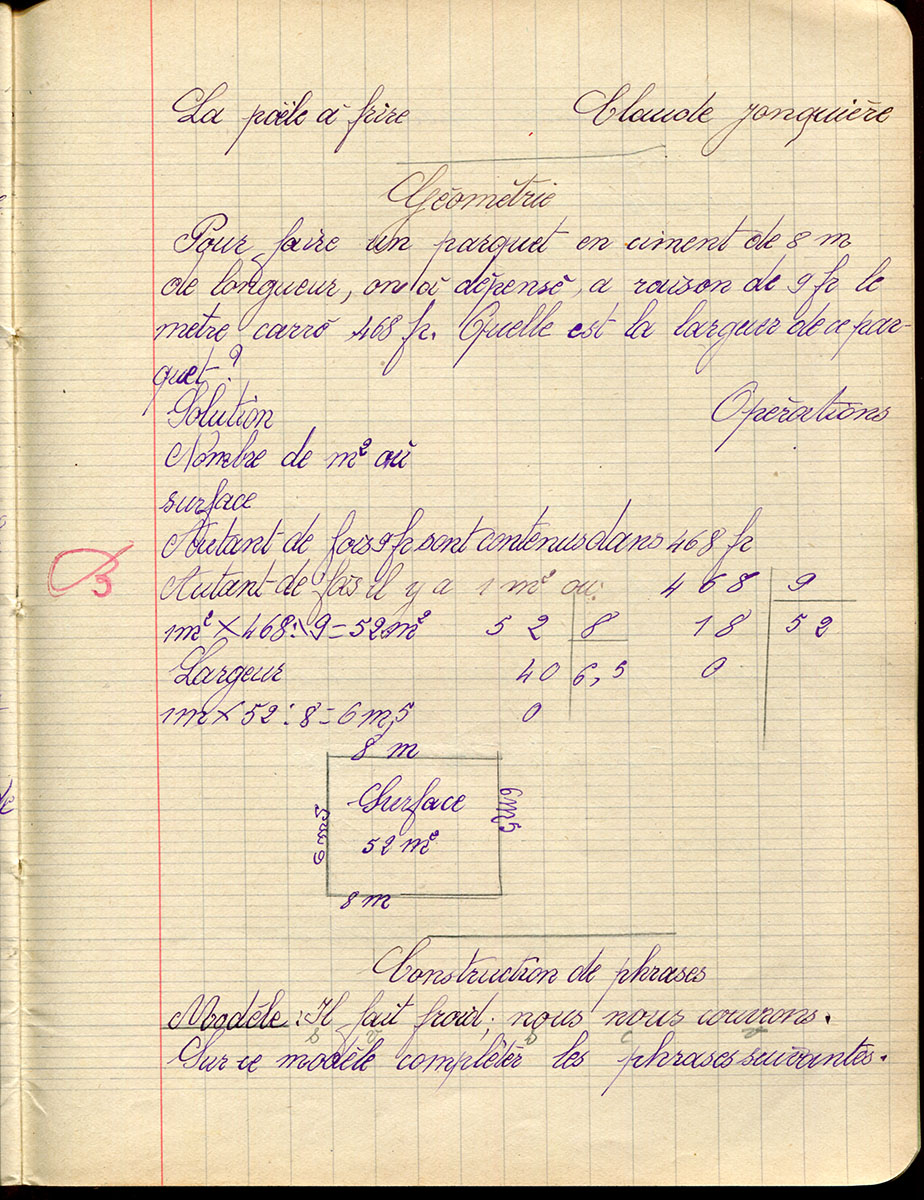 La poële à frire Claude Jonquière
Géométrie
Pour faire un parquet en ciment de 8 m
de longueur, on a dépensé, a raison de 9 fr le
mètre carré 468 fr. Quelle est la largeur de ce par-
quet ?
Solution Opérations
Nombre de m² ou
surface
Autant de fois 9 fr sont contenus dans 468 fr
Autant de fois il y a 1 m² ou: 468 9
1m² × 468 : 9 = 52 m² 52 8 18 52
Largeur 40 6,5 0
1m × 52 : 8 = 6 m,5 0
8 m
Surface
6m5 6m5
52 m²
8 m
Construction de phrases
Modèle : Il fait froid ; nous nous couvrons.
s v s c v
Sur ce modèle compléter les phrases suivantes.
B